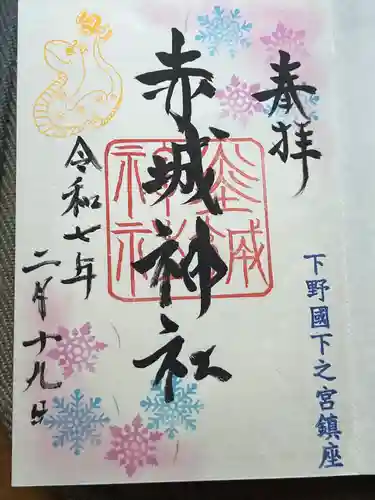 奉拝
下野國下之宮鎮座
赤城神社
赤城神社
令和七年
二月十九日